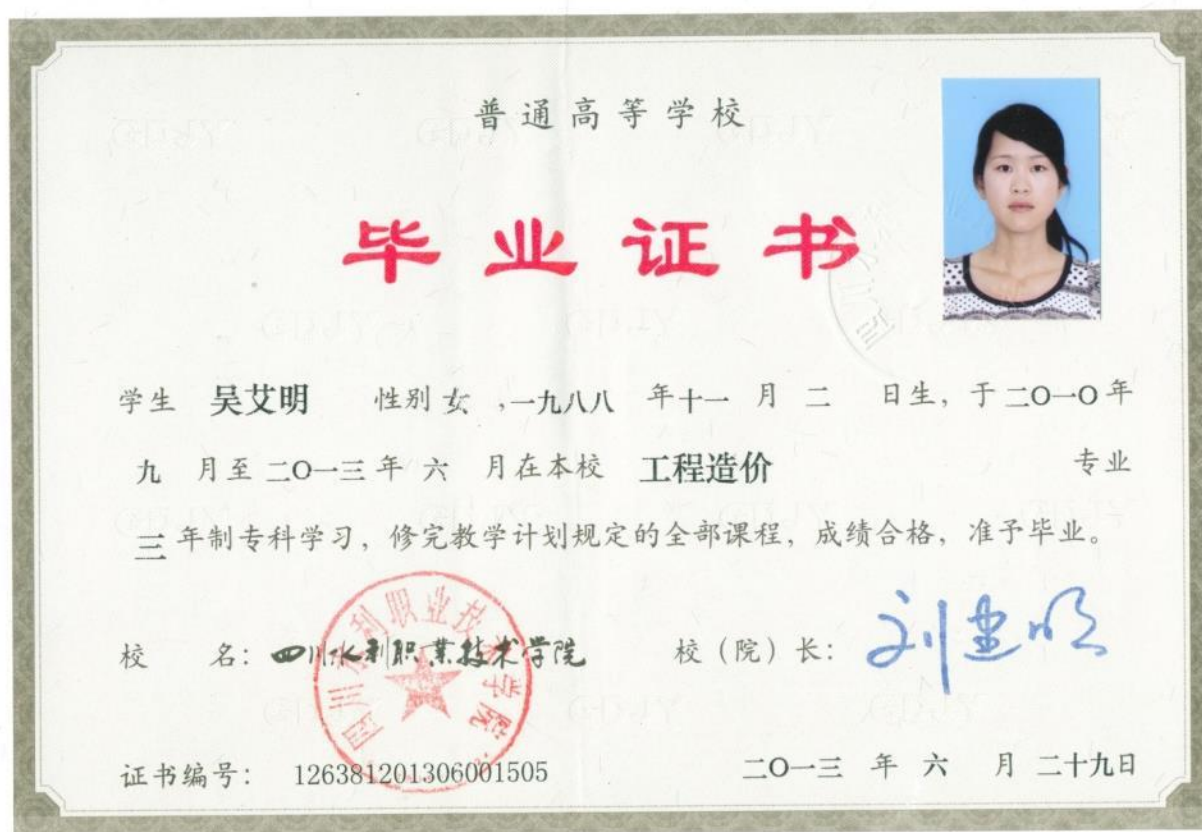 普通高等学校
毕业证书
学生 吴艾明 性别 女 ,一九八八 年十一 月 二 日生，于二O一O年
九 月至 二O一三 年 六 月在本校 工程造价 专业
三 年制专科学习，修完教学计划规定的全部课程，成绩合格，准予毕业。
校 名：四川水利职业技术学院 校（院）长：刘建明
四川水利职业技术学院
证书编号： 126381201306001505 二O一三 年 六 月 二十九日